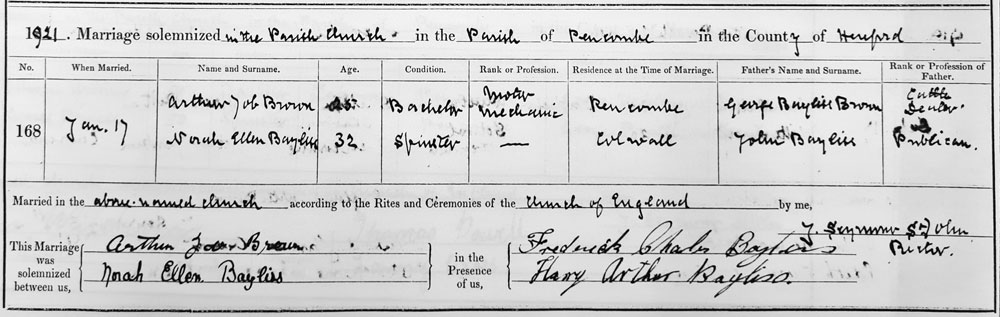 1921. Marriage solemnized in the Parish Church in the Parish of Pencombe in the County of Hereford
No. When Married. Name and Surname. Age. Condition. Rank or Profession. Residence at the Time of Marriage. Father's Name and Surname. Rank or Profession of Father.
168 Jan. 17 Arthur Job Brown Bachelor Motor Mechanic Pencombe George Bayliss Brown Cattle Dealer
Norah Ellen Bayliss 32 Spinster — Colwall John Bayliss Publican.
Married in the above-named Church according to the Rites and Ceremonies of the Church of England by me,
J. Seymour St John
Rector.
This Marriage was solemnized between us, Arthur Job Brown in the Presence of us, Frederick Charles Bayliss
Norah Ellen Bayliss Harry Arthur Bayliss.